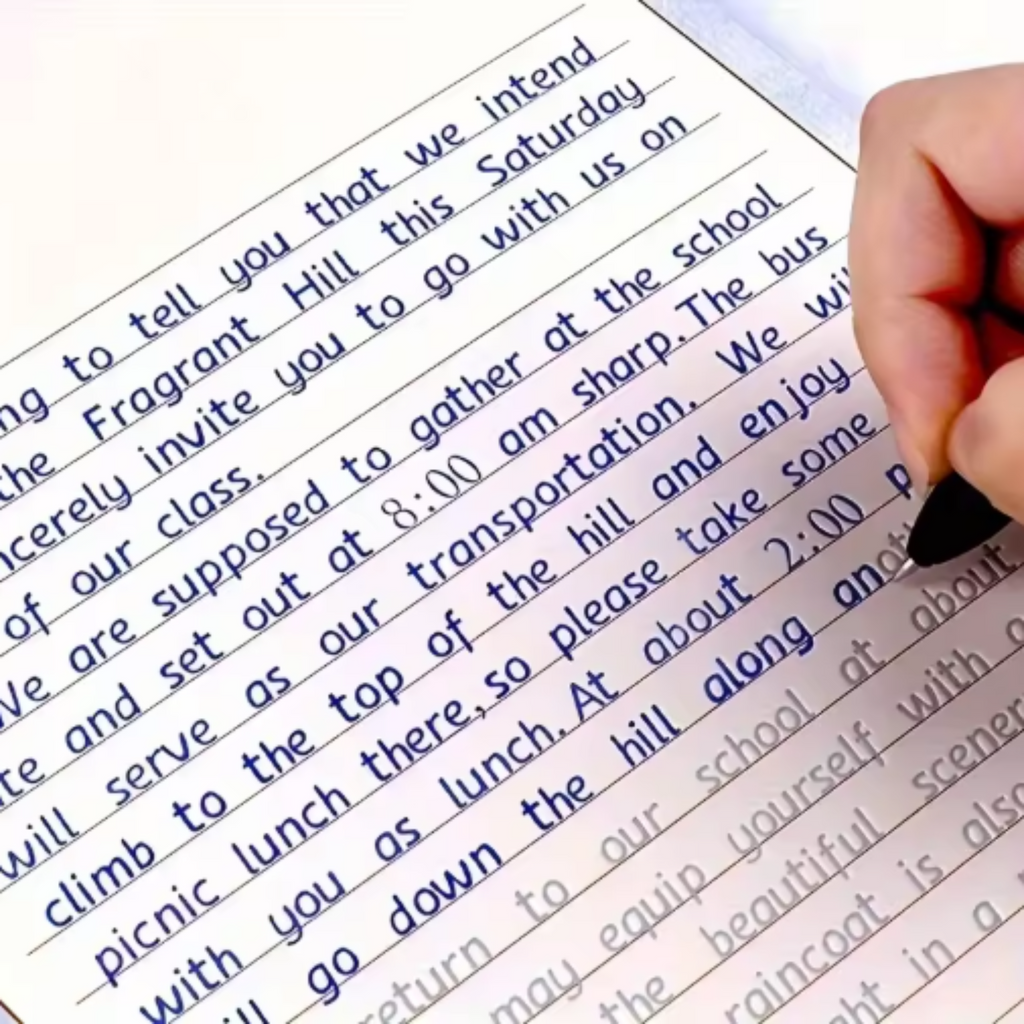 to tell you that we intend
the Fragrant Hill this Saturday
invite you to go with us on
of our class.
We are supposed to gather at the school
and set out at 8:00 am sharp. The bus
will serve as our transportation. We
climb to the top of the hill and enjoy
picnic lunch there, so please take some
with you as lunch. At about 2:00
go down the hill along
return to our school at about
may equip yourself with
the beautiful
raincoat is also
in a